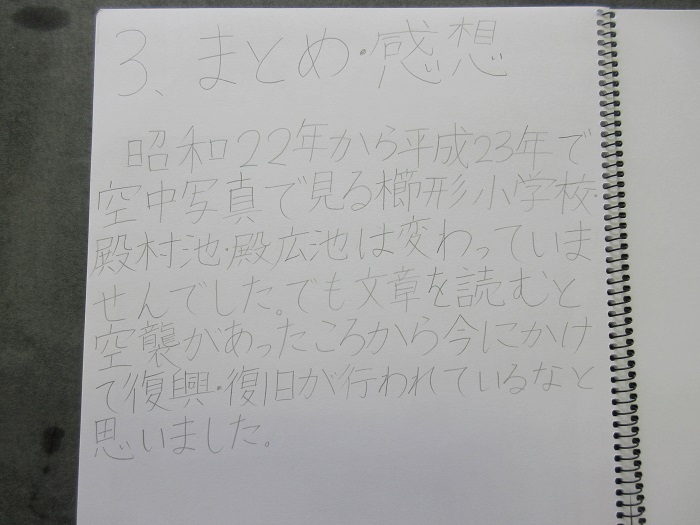 3、まとめ・感想
昭和22年から平成23年で
空中写真で見る櫛形小学校・
殿村池・殿広池は変わっていま
せんでした。でも文章を読むと
空襲があったころから今にかけ
て復興・復旧が行われているなと
思いました。